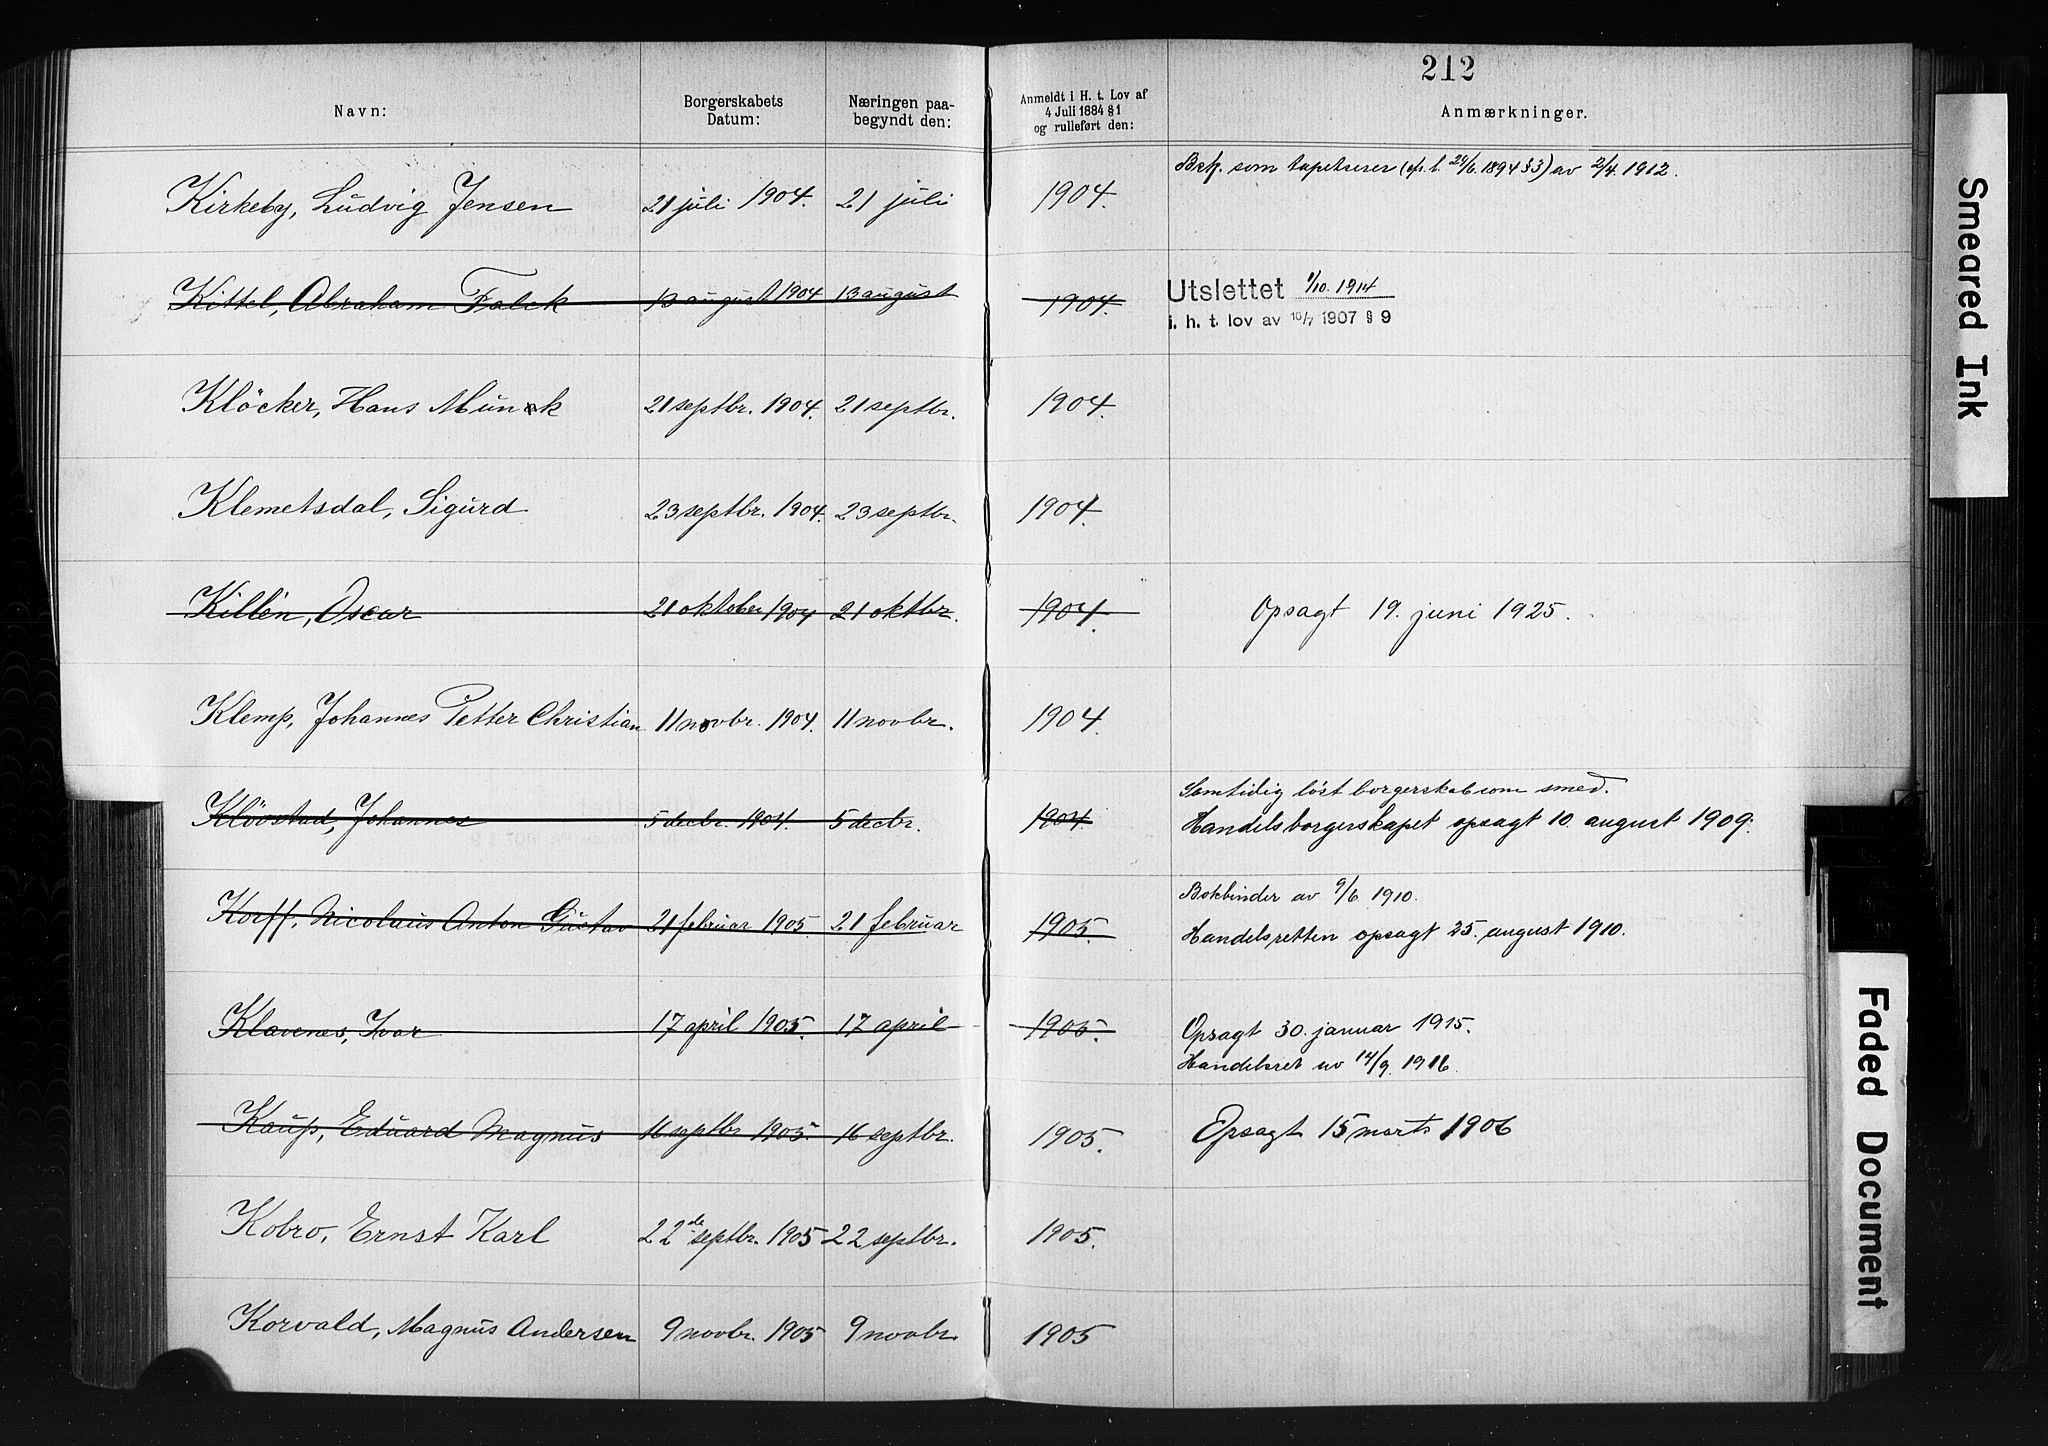 212
Navn: Borgerskabets Datum: Næringen paabegyndt den: Anmeldt i H. t. Lov af 4 Juli 1884 § 1 og rulleført den: Anmærkninger.
Kirkeby, Ludvig Jensen 21 juli 1904. 21 juli 1904. som tapetserer 1894 § 3) av 2/4. 1912.
Kittel, Abraham Falck 13 august 1904 13 august 1904. Utslettet 1/10. 1914
i. h. t. lov av 10/7 1907 § 9
Klöcker, Hans Munk 21 septbr. 1904. 21 septbr. 1904.
Klemetsdal, Sigurd 23 septbr. 1904. 23 septbr. 1904.
Killén, Oscar 21 oktober 1904 21 oktbr. 1904. Opsagt 19. juni 1925.
Klemp, Johannes Petter Christian 11 novbr. 1904. 11 novbr. 1904.
Samtidig löst borgerskab som smed.
Klövstad, Johannes 5 decbr. 1904. 5 decbr. 1904. Handelsborgerskapet opsagt 10. august 1909.
Bokbinder av 9/6. 1910.
Korff, Nicolaus Anton Gustav 21 februar 1905. 21 februar 1905. Handelsretten opsagt 25. august 1910.
Klavenes, Ivar 17 april 1905. 17 april 1905. Opsagt 30. januar 1915.
Handelsret av 14/9. 1916.
Kaup, Eduard Magnus 16 septbr 1905. 16 septbr. 1905. Opsagt 15 marts 1906
Kobro, Ernst Karl 22de septbr. 1905 22 septbr. 1905.
Korvald, Magnus Andersen 9 novbr. 1905 9 novbr. 1905
Smeared Ink
Faded Document